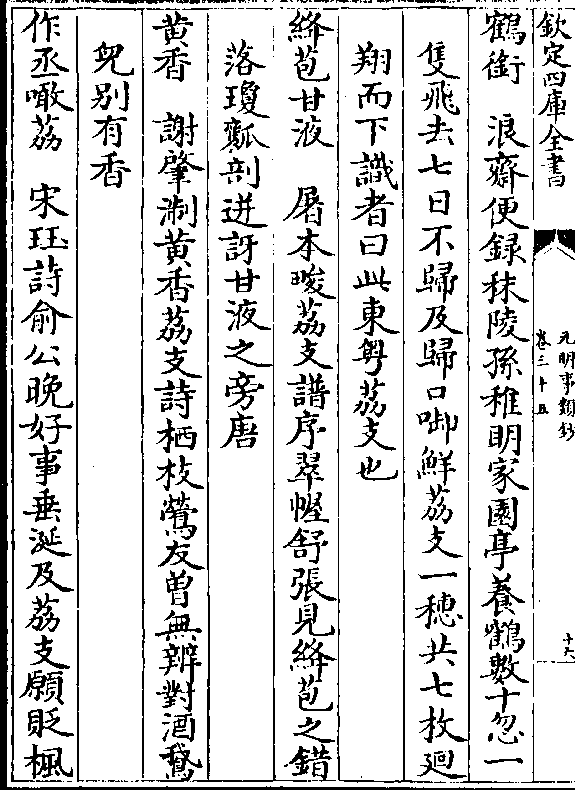 欽定四庫全書
元明事類鈔
卷三十五
十六
鶴銜　浪齋便録秣陵孫稚明家園亭養鶴數十忽一
隻飛去七日不歸及歸口啣鮮荔支一穗共七枚廻
翔而下識者曰此東粤荔支也
絳苞甘液　屠本畯荔支譜序翠幄舒張見絳苞之錯
落瓊瓤剖迸訝甘液之旁唐
黄香　謝肇淛黄香荔支詩栖枝鶯友曾無辨對酒鵞
兒别有香
作丞噉荔　宋珏詩俞公晚好事垂涎及荔支願貶楓